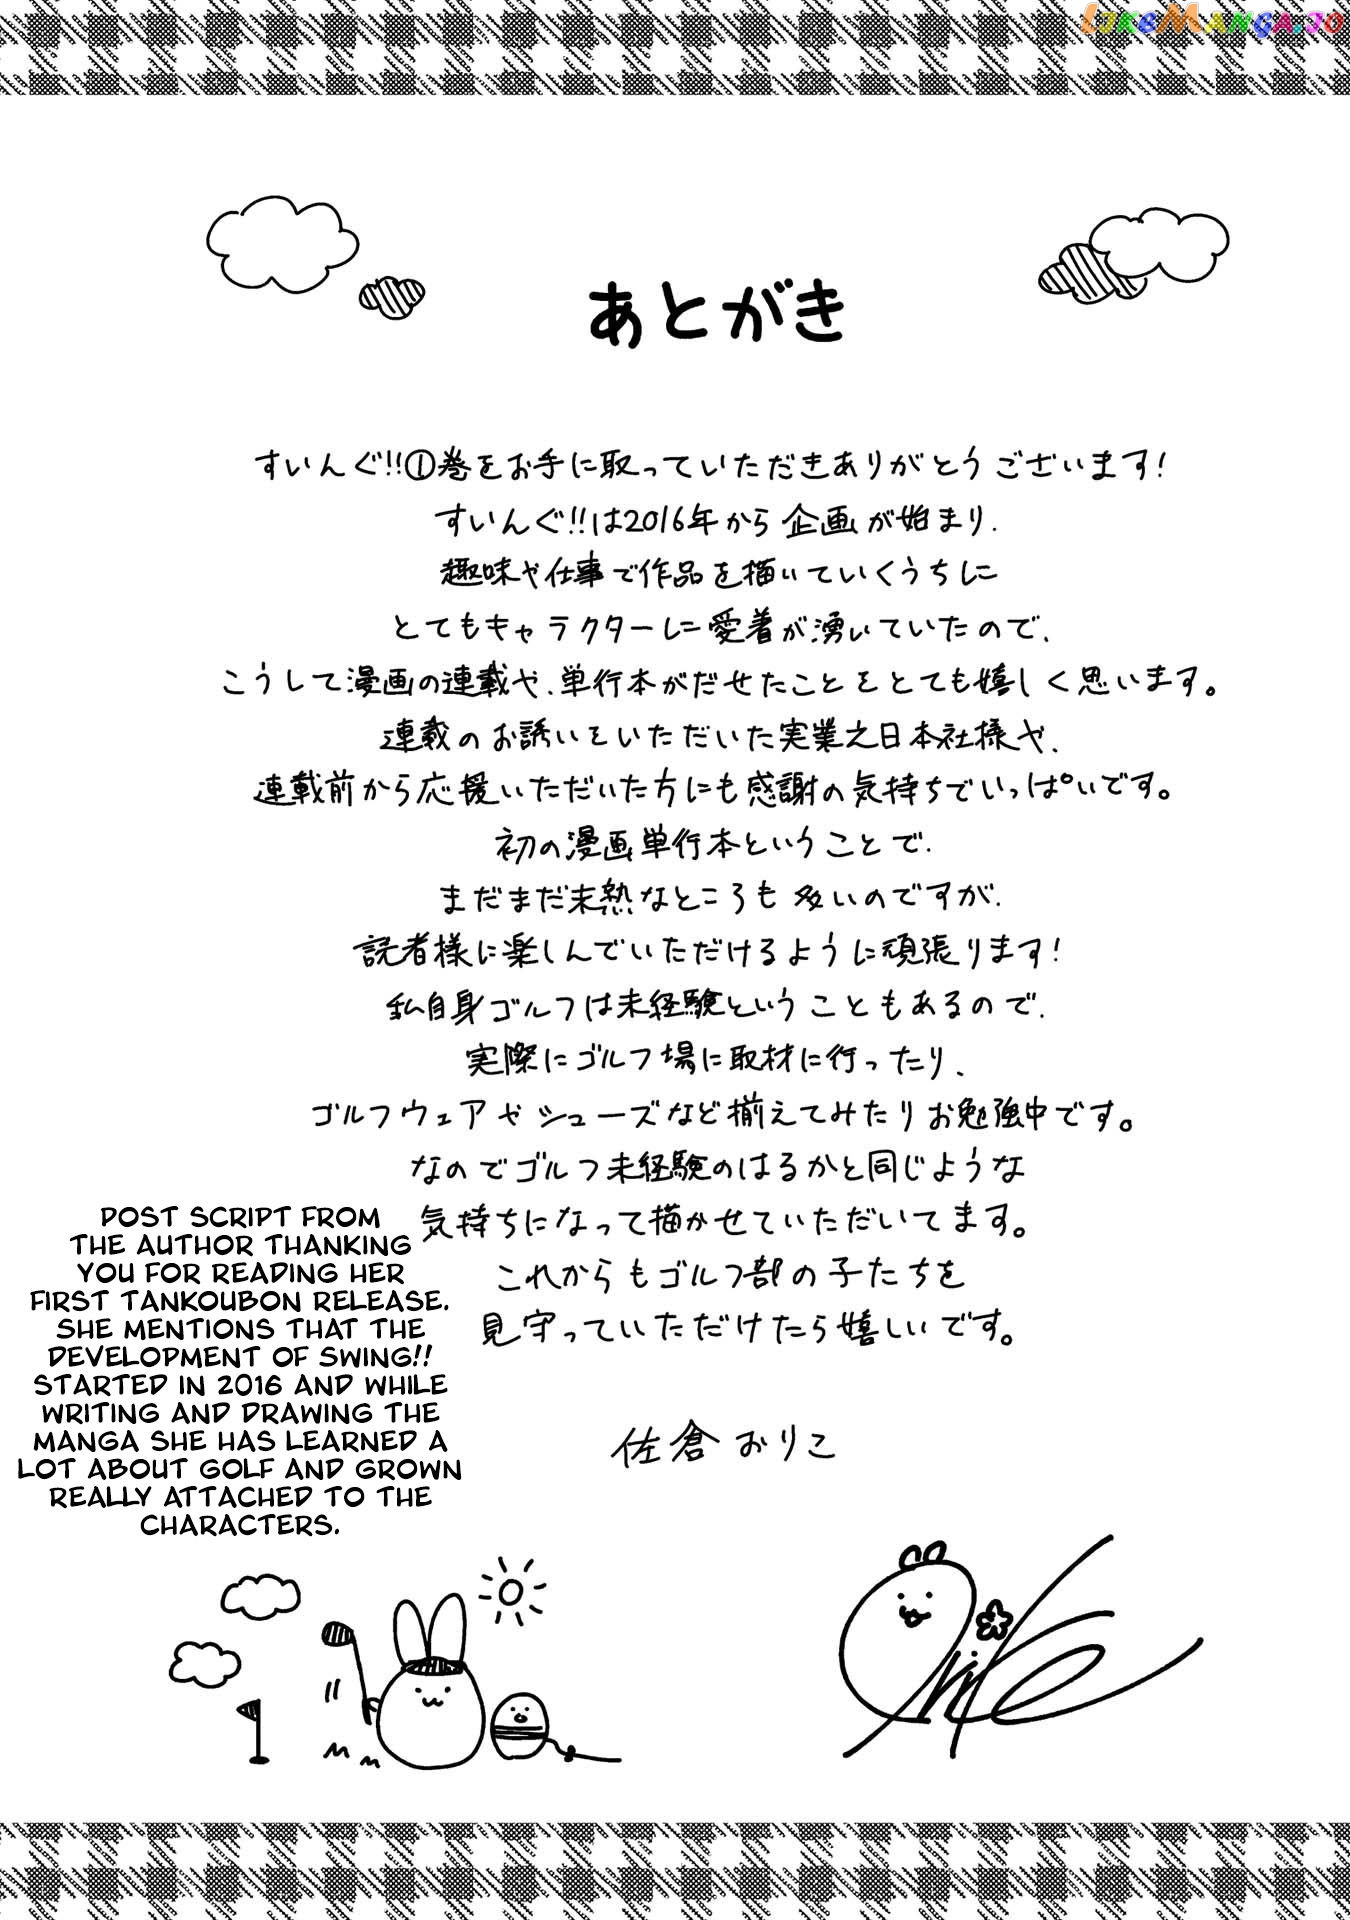 LIKEMANGA.IO
あとがき
すいんぐ!!①巻をお手に取っていただきありがとうございます!
すいんぐ!!は2016年から企画が始まり、
趣味や仕事で作品を描いていくうちに
とてもキャラクターに愛着が湧いていたので、
こうして漫画の連載や、単行本がだせたことをとても嬉しく思います。
連載のお誘いをいただいた実業之日本社様や、
連載前から応援いただいた方にも感謝の気持ちでいっぱいです。
初の漫画単行本ということで、
まだまだ未熟なところも多いのですが、
読者様に楽しんでいただけるように頑張ります!
私自身ゴルフは未経験ということもあるので、
実際にゴルフ場に取材に行ったり、
ゴルフウェアやシューズなど揃えてみたりお勉強中です。
なのでゴルフ未経験のはるかと同じような
気持ちになって描かせていただいてます。
これからもゴルフ部の子たちを
見守っていただけたら嬉しいです。
佐倉おりこ
POST SCRIPT FROM
THE AUTHOR THANKING
YOU FOR READING HER
FIRST TANKOUBON RELEASE.
SHE MENTIONS THAT THE
DEVELOPMENT OF SWING!!
STARTED IN 2016 AND WHILE
WRITING AND DRAWING THE
MANGA SHE HAS LEARNED A
LOT ABOUT GOLF AND GROWN
REALLY ATTACHED TO THE
CHARACTERS.